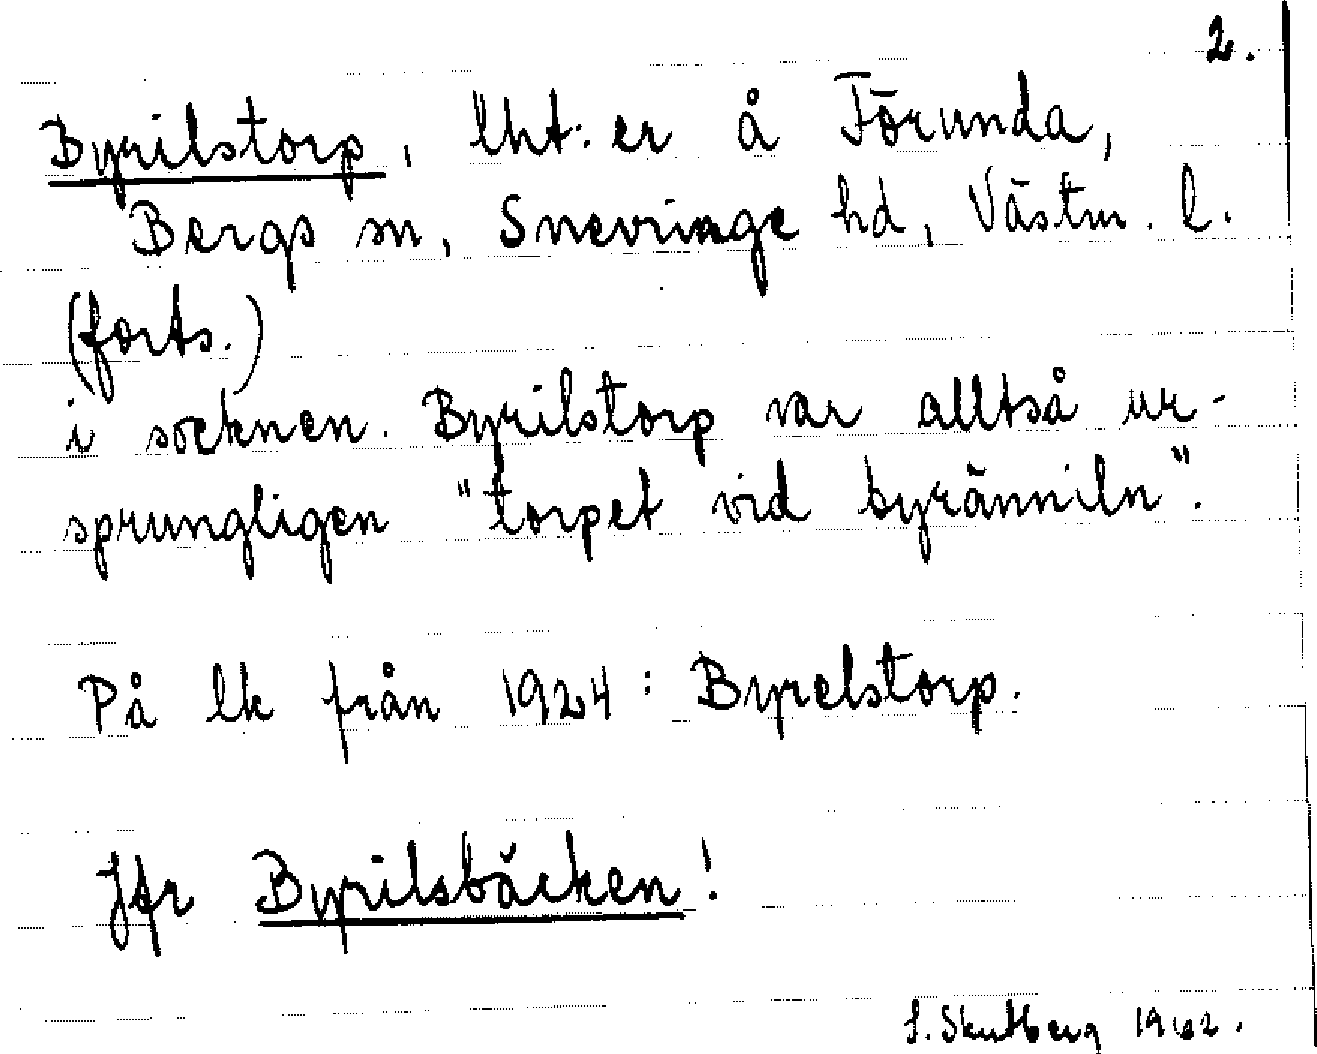 2.
Byrilstorp, lht:er å Forunda,
Bergs sn, Snevringe hd, Västm. l.
(forts.)
i socknen. Byrilstorp var alltså ur-
sprungligen "torpet vid byränniln".
På lk från 1924: Byrelstorp.
Jfr Byrilsbäcken!
1962.